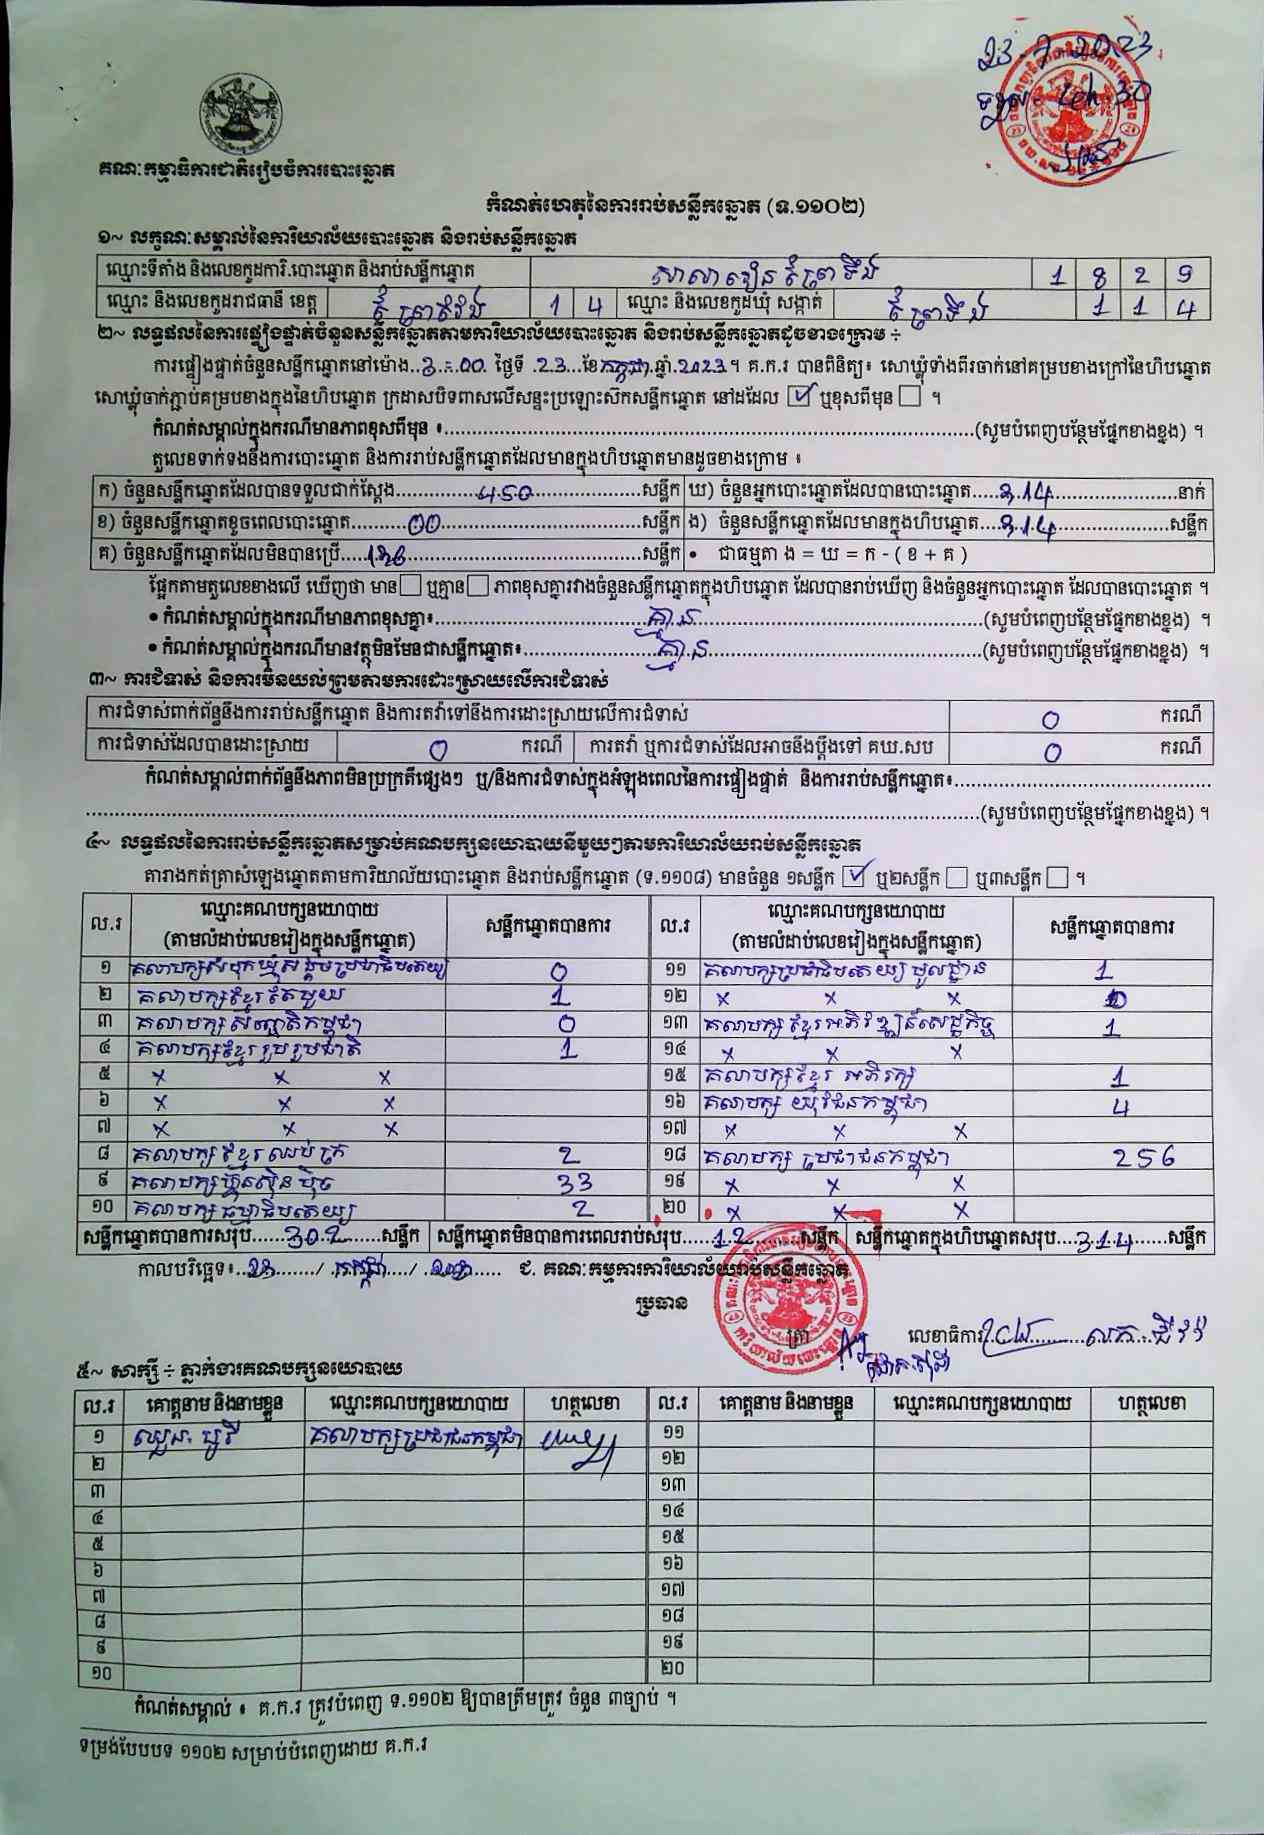 23-7-2023
ទទួល 16h 30
គណៈកម្មាធិការជាតិរៀបចំការបោះឆ្នោត
កំណត់ហេតុនៃការរាប់សន្លឹកឆ្នោត (ទ.១១០២)
១~ លក្ខណៈសម្គាល់នៃការិយាល័យបោះឆ្នោត និងរាប់សន្លឹកឆ្នោត
ឈ្មោះទីតាំង និងលេខកូដការិ.បោះឆ្នោត និងរាប់សន្លឹកឆ្នោត សាលារៀន 1 8 2 9
ឈ្មោះ និងលេខកូដរាជធានី ខេត្ត 1 4 ឈ្មោះ និងលេខកូដឃុំ សង្កាត់ 1 1 4
២~ លទ្ធផលនៃការផ្ទៀងផ្ទាត់ចំនួនសន្លឹកឆ្នោតតាមការិយាល័យបោះឆ្នោត និងរាប់សន្លឹកឆ្នោតដូចខាងក្រោម ÷
ការផ្ទៀងផ្ទាត់ចំនួនសន្លឹកឆ្នោតនៅម៉ោង..3:00 ថ្ងៃទី .23...ខែកក្កដា.ឆ្នាំ.2023។ គ.ក.រ បានពិនិត្យ៖ សោឃ្លុំទាំងពីរចាក់នៅគម្របខាងក្រៅនៃហិបឆ្នោត
សោឃ្លុំចាក់ភ្ជាប់គម្របខាងក្នុងនៃហិបឆ្នោត ក្រដាសបិទពាសលើសន្ទះប្រឡោះស៊កសន្លឹកឆ្នោត នៅដដែល ☑ ឬខុសពីមុន ☐ ។
កំណត់សម្គាល់ក្នុងករណីមានភាពខុសពីមុន ៖..........(សូមបំពេញបន្ថែមផ្នែកខាងខ្នង) ។
តួលេខទាក់ទងនឹងការបោះឆ្នោត និងការរាប់សន្លឹកឆ្នោតដែលមានក្នុងហិបឆ្នោតមានដូចខាងក្រោម ៖
ក) ចំនួនសន្លឹកឆ្នោតដែលបានទទួលជាក់ស្តែង......450......សន្លឹក ឃ) ចំនួនអ្នកបោះឆ្នោតដែលបានបោះឆ្នោត.....314......នាក់
ខ) ចំនួនសន្លឹកឆ្នោតខូចពេលបោះឆ្នោត......00......សន្លឹក ង) ចំនួនសន្លឹកឆ្នោតដែលមានក្នុងហិបឆ្នោត....314......សន្លឹក
គ) ចំនួនសន្លឹកឆ្នោតដែលមិនបានប្រើ.....136......សន្លឹក • ជាធម្មតា ង = ឃ = ក - ( ខ + គ )
ផ្អែកតាមតួលេខខាងលើ ឃើញថា មាន ☐ ឬគ្មាន ☐ ភាពខុសគ្នារវាងចំនួនសន្លឹកឆ្នោតក្នុងហិបឆ្នោត ដែលបានរាប់ឃើញ និងចំនួនអ្នកបោះឆ្នោត ដែលបានបោះឆ្នោត ។
• កំណត់សម្គាល់ក្នុងករណីមានភាពខុសគ្នា៖......គ្មាន......(សូមបំពេញបន្ថែមផ្នែកខាងខ្នង) ។
• កំណត់សម្គាល់ក្នុងករណីមានវត្ថុមិនមែនជាសន្លឹកឆ្នោត៖......គ្មាន......(សូមបំពេញបន្ថែមផ្នែកខាងខ្នង) ។
៣~ ការជំទាស់ និងការមិនយល់ព្រមតាមការដោះស្រាយលើការជំទាស់
ការជំទាស់ពាក់ព័ន្ធនឹងការរាប់សន្លឹកឆ្នោត និងការតវ៉ាទៅនឹងការដោះស្រាយលើការជំទាស់ 0 ករណី
ការជំទាស់ដែលបានដោះស្រាយ 0 ករណី ការតវ៉ា ឬការជំទាស់ដែលអាចនឹងប្តឹងទៅ គឃ.សប 0 ករណី
កំណត់សម្គាល់ពាក់ព័ន្ធនឹងភាពមិនប្រក្រតីផ្សេងៗ ឬ/និងការជំទាស់ក្នុងអំឡុងពេលនៃការផ្ទៀងផ្ទាត់ និងការរាប់សន្លឹកឆ្នោត៖..........
..........(សូមបំពេញបន្ថែមផ្នែកខាងខ្នង) ។
៤~ លទ្ធផលនៃការរាប់សន្លឹកឆ្នោតសម្រាប់គណបក្សនយោបាយនីមួយៗតាមការិយាល័យរាប់សន្លឹកឆ្នោត
តារាងកត់ត្រាសំឡេងឆ្នោតតាមការិយាល័យបោះឆ្នោត និងរាប់សន្លឹកឆ្នោត (ទ.១១០៨) មានចំនួន ១សន្លឹក ☑ ឬ២សន្លឹក ☐ ឬ៣សន្លឹក ☐ ។
ល.រ ឈ្មោះគណបក្សនយោបាយ (តាមលំដាប់លេខរៀងក្នុងសន្លឹកឆ្នោត) សន្លឹកឆ្នោតបានការ ល.រ ឈ្មោះគណបក្សនយោបាយ (តាមលំដាប់លេខរៀងក្នុងសន្លឹកឆ្នោត) សន្លឹកឆ្នោតបានការ
១ គណបក្សសំបុកឃ្មុំសង្គមប្រជាធិបតេយ្យ 0 ១១ គណបក្សប្រជាធិបតេយ្យមូលដ្ឋាន 1
២ គណបក្សខ្មែរតែមួយ 1 ១២ x x x
៣ គណបក្សសញ្ជាតិកម្ពុជា 0 ១៣ គណបក្សខ្មែរអភិវឌ្ឍន៍សេដ្ឋកិច្ច 1
៤ គណបក្សខ្មែររួបរួមជាតិ 1 ១៤ x x x
៥ x x x ១៥ គណបក្សខ្មែរអភិរក្ស 1
៦ x x x ១៦ គណបក្សយុវជនកម្ពុជា 4
៧ x x x ១៧ x x x
៨ គណបក្សខ្មែរឈប់ក្រ 2 ១៨ គណបក្សប្រជាជនកម្ពុជា 256
៩ គណបក្សហ៊្វុនស៊ិនប៉ិច 33 ១៩ x x x
១០ គណបក្សធម្មាធិបតេយ្យ 2 ២០ x x x
សន្លឹកឆ្នោតបានការសរុប......302......សន្លឹក សន្លឹកឆ្នោតមិនបានការពេលរាប់សរុប.....12......សន្លឹក សន្លឹកឆ្នោតក្នុងហិបឆ្នោតសរុប....314......សន្លឹក
កាលបរិច្ឆេទ៖..23....../ .កក្កដា.../ .2023..... ជ. គណៈកម្មការការិយាល័យរាប់សន្លឹកឆ្នោត
ប្រធាន
ត្រា លេខាធិការ
៥~ សាក្សី ÷ ភ្នាក់ងារគណបក្សនយោបាយ
ល.រ គោត្តនាម និងនាមខ្លួន ឈ្មោះគណបក្សនយោបាយ ហត្ថលេខា ល.រ គោត្តនាម និងនាមខ្លួន ឈ្មោះគណបក្សនយោបាយ ហត្ថលេខា
១ គណបក្សប្រជាជនកម្ពុជា ១១
២ ១២
៣ ១៣
៤ ១៤
៥ ១៥
៦ ១៦
៧ ១៧
៨ ១៨
៩ ១៩
១០ ២០
កំណត់សម្គាល់ ៖ គ.ក.រ ត្រូវបំពេញ ទ.១១០២ ឱ្យបានត្រឹមត្រូវ ចំនួន ៣ច្បាប់ ។
ទម្រង់បែបបទ ១១០២ សម្រាប់បំពេញដោយ គ.ក.រ